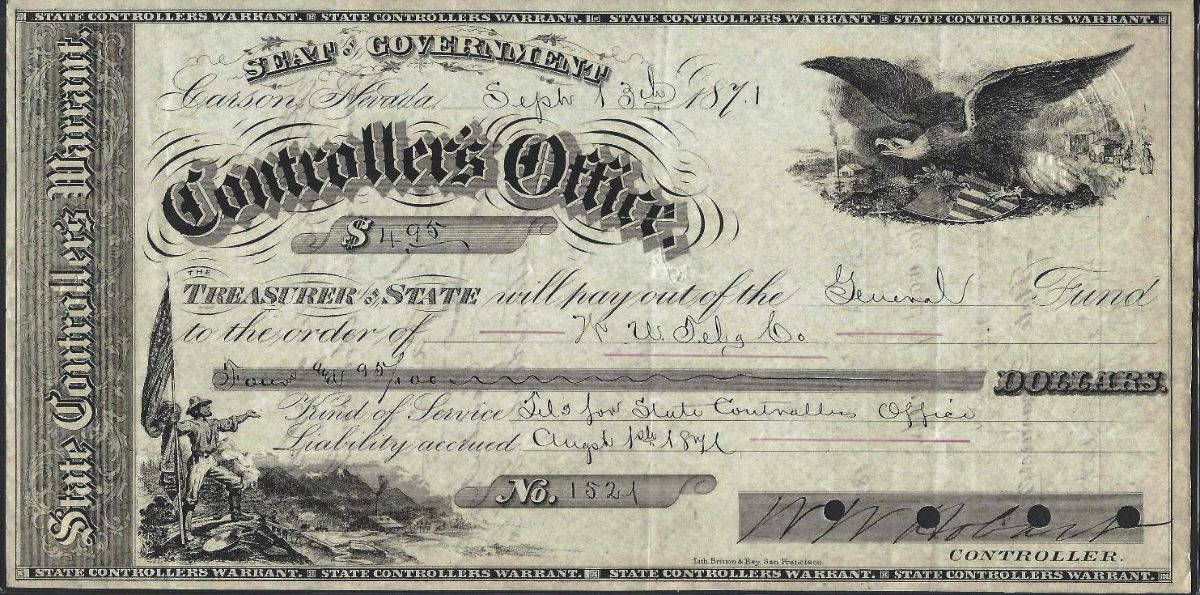 STATE CONTROLLERS WARRANT. STATE CONTROLLERS WARRANT. STATE CONTROLLERS WARRANT. STATE CONTROLLERS WARRANT.
State Controller's Warrant.
SEAT OF GOVERNMENT
Carson, Nevada, Sept 13th 1871
Controller's Office.
$ 4.95
THE
TREASURER OF STATE will pay out of the General Fund
to the order of W. U. Telg Co
Four and 95/100 DOLLARS.
Kind of Service Tel's for State Controllers Office
Liability accrued Augst 1st 1871
No. 1521
W W Hobart
CONTROLLER.
Lith. Britton & Rey. San Francisco.
STATE CONTROLLERS WARRANT. STATE CONTROLLERS WARRANT. STATE CONTROLLERS WARRANT. STATE CONTROLLERS WARRANT.